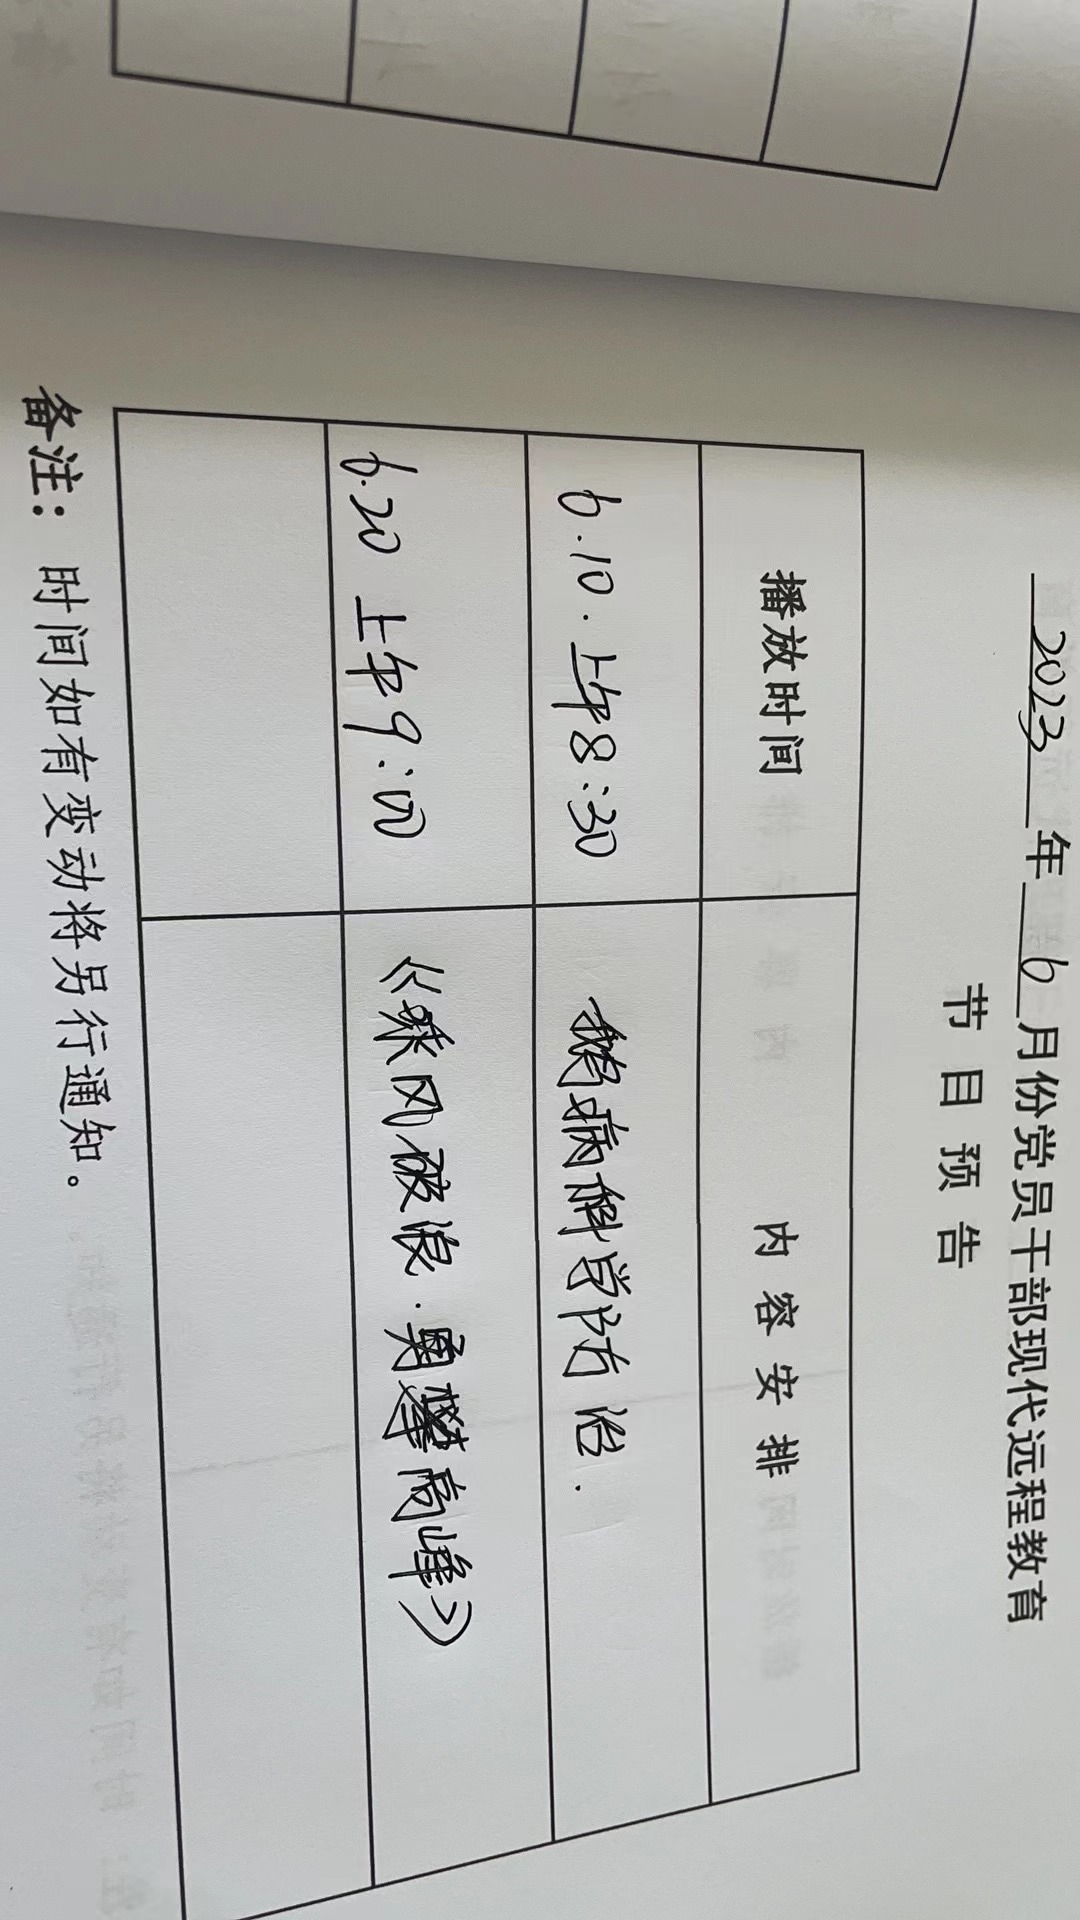 2023年6月份党员干部现代远程教育
节目预告
播放时间 内容安排
6.10.上午8:30 鹅病科学防治.
6.20 上午9:00 《乘风破浪.勇攀高峰》
备注：时间如有变动将另行通知。